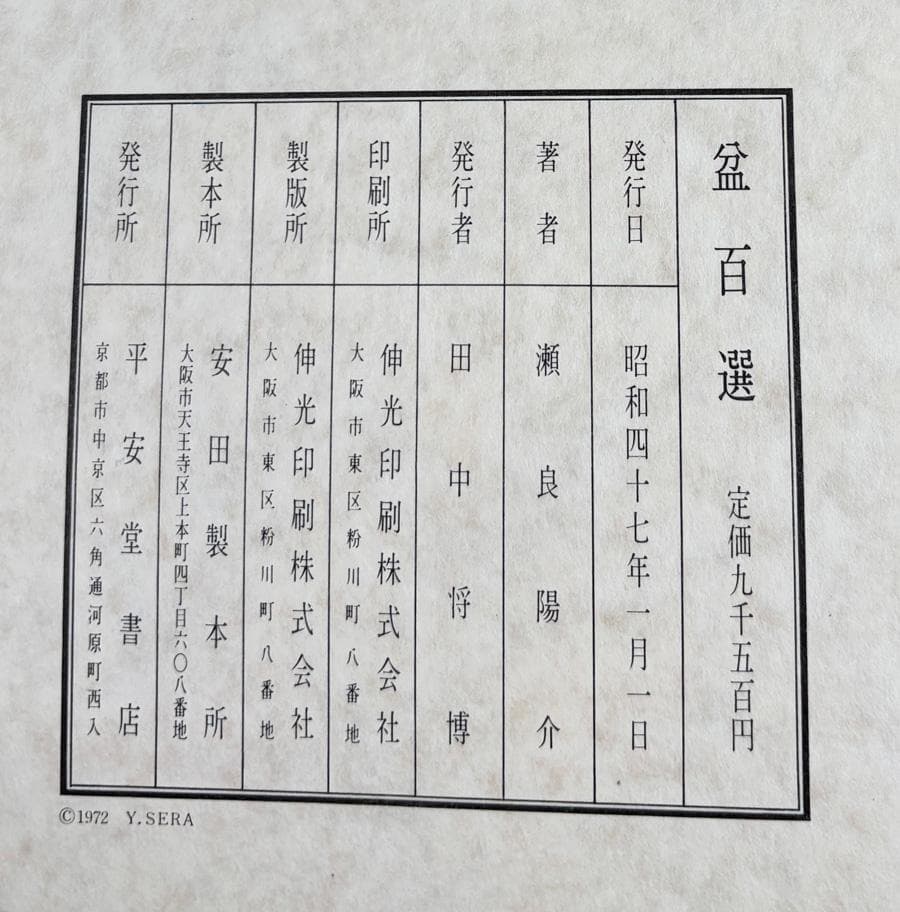 盆百選
定価九千五百円
発行日
昭和四十七年一月一日
著者
瀬良陽介
発行者
田中将博
印刷所
伸光印刷株式会社
大阪市東区粉川町八番地
製版所
伸光印刷株式会社
大阪市東区粉川町八番地
製本所
安田製本所
大阪市天王寺区上本町四丁目六〇八番地
発行所
平安堂書店
京都市中京区六角通河原町西入
©1972 Y.SERA